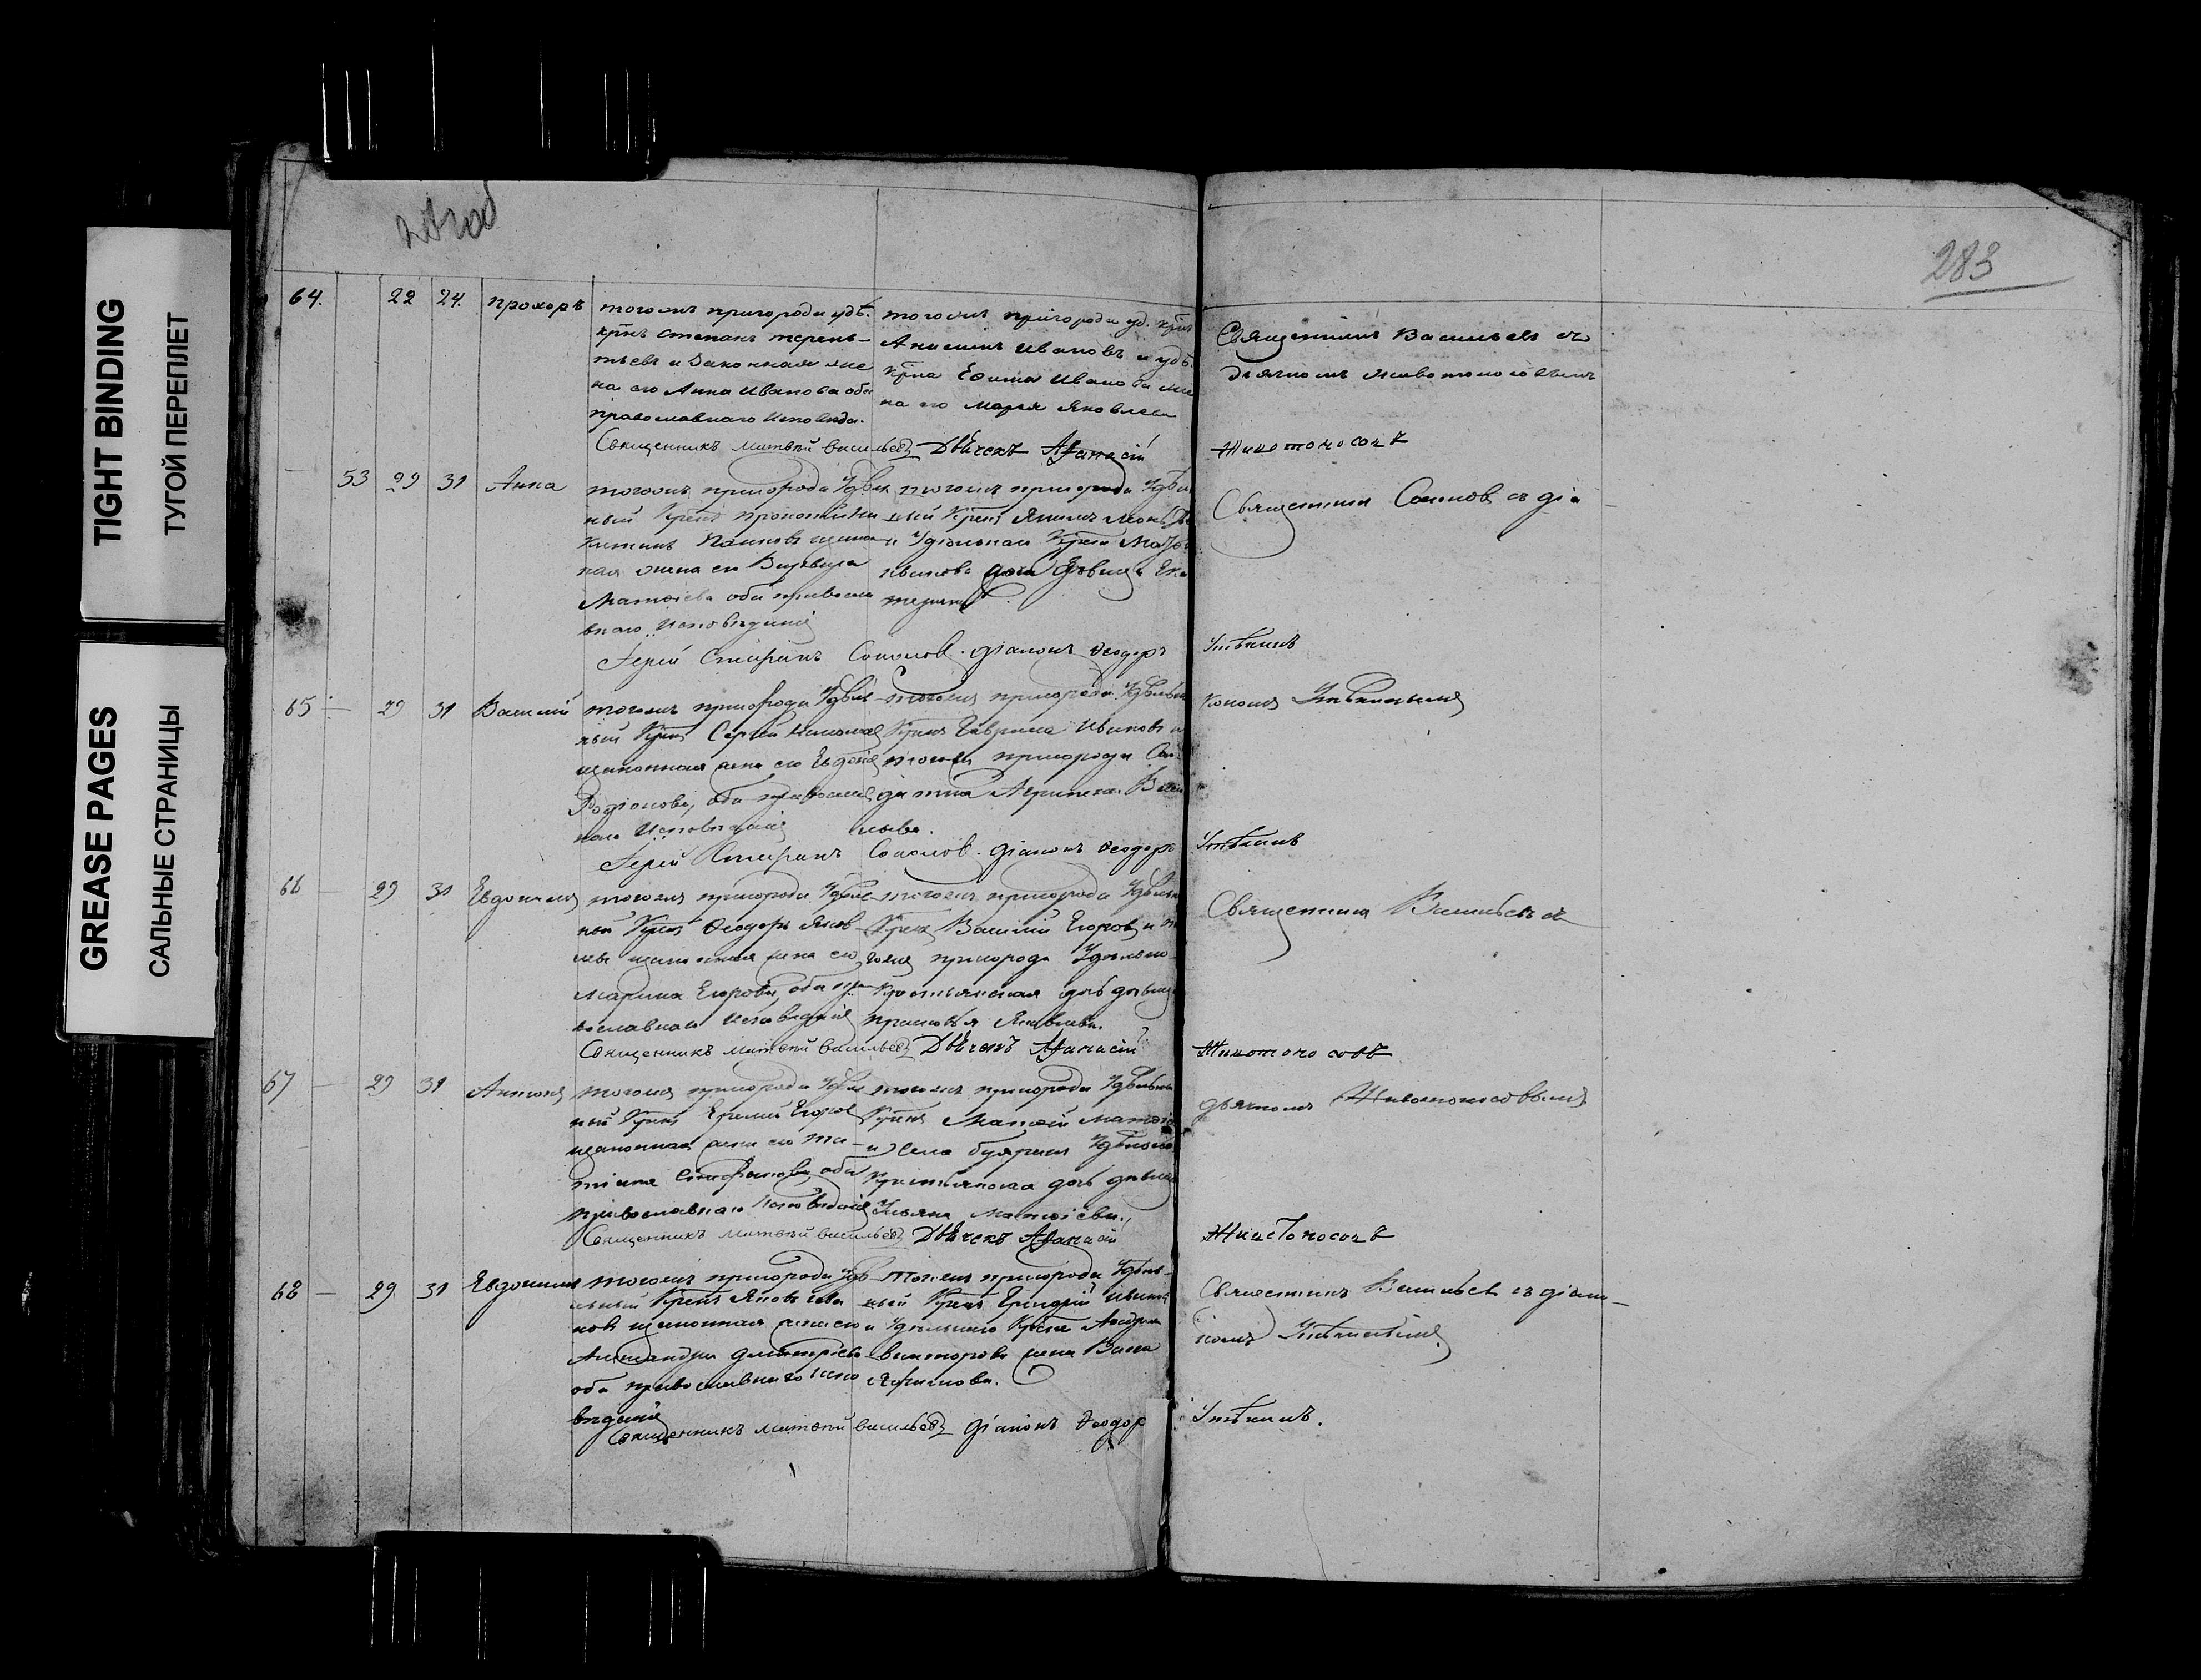 TIGHT BINDING
ТУГОЙ ПЕРЕПЛЕТ
GREASE PAGES
САЛЬНЫЕ СТРАНИЦЫ
283
64. 22 24. Прохоръ
тогожъ пригорода удѣ.
крнъ Степанъ Терень-
тьевъ и Законная же
на его Анна Иванова оба
православнаго Исповѣда.
тогожъ пригорода уд. крнъ
Анисимъ Ивановъ и удѣ.
крна Ефима Иванова же
на его Марья Яковлева
Священникъ Васильевъ съ
дьячкомъ Животоносовымъ
Священникъ Матвѣй Васильевъ Дьячекъ Афанасій Животоносовъ
53 29 31 Анна
тогожъ пригорода Удѣль
ный Крнъ
жена его
Матвіева оба правосла
внаго Исповѣданія
тогожъ пригорода Удѣль
ный Крнъ Якимъ
и Удѣльнаго Крна
Иванова дочь дѣвица Ека
терина
Священникъ Соколовъ съ діа
Іерей Стефанъ Соколовъ. діаконъ Ѳеодоръ Утѣхинъ
65 29 31 Василій
тогожъ пригорода Удѣль
ный Крнъ Сергѣй Николаевъ
законная жена его Евдокія
Родіонова, оба правосла
наго Исповѣданія
тогожъ пригорода Удѣльный
Крнъ Гаврила Ивановъ и
тогожъ пригорода Сол
датка Агрипена Васи
льева.
кономъ Утѣхинымъ
Іерей Стефанъ Соколовъ. діаконъ Ѳеодоръ Утѣхинъ
66 29 31 Евдокимъ
тогожъ пригорода Удѣль
ный Крнъ Ѳеодоръ Яков
левъ законная жена его
Марина Егорова, оба пра
вославнаго Исповѣданія
тогожъ пригорода Удѣльный
Крнъ Василій Егоровъ и то
гожъ пригорода Удѣльно
Крестьянская дочь дѣвица
Прасковья Яковлева.
Священникъ Васильевъ съ
Священникъ Матвѣй Васильевъ Дьячекъ Афанасій Животоносовъ
67 29 31 Антонъ
тогожъ пригорода Удѣль
ный Крнъ Еремѣй Егоровъ
законная жена его Та
тіана Стефанова, оба
православнаго Исповѣданія
тогожъ пригорода Удѣльный
Крнъ Матвій Матвіе
и Села Удѣльно
Крестьянска дочь дѣвица
Ульяна Матвіева.
дьячкомъ Животоносовымъ
Священникъ Матвѣй Васильевъ Дьячекъ Афанасій Животоносовъ
68 29 31 Евдокимъ
тогожъ пригорода Удѣ
льный Крнъ Яковъ Ива
новъ законная жена его
Александра Дмитріева
оба православнаго Испо
вѣданія
тогожъ пригорода Удѣль-
ный Крнъ Григорій Ивановъ
и Удѣльнаго Крна Андрея
Викторова жена Васса
Священникъ Васильевъ съ діако-
номъ Утѣхинымъ
Священникъ Матвѣй Васильевъ діаконъ Ѳеодоръ Утѣхинъ.